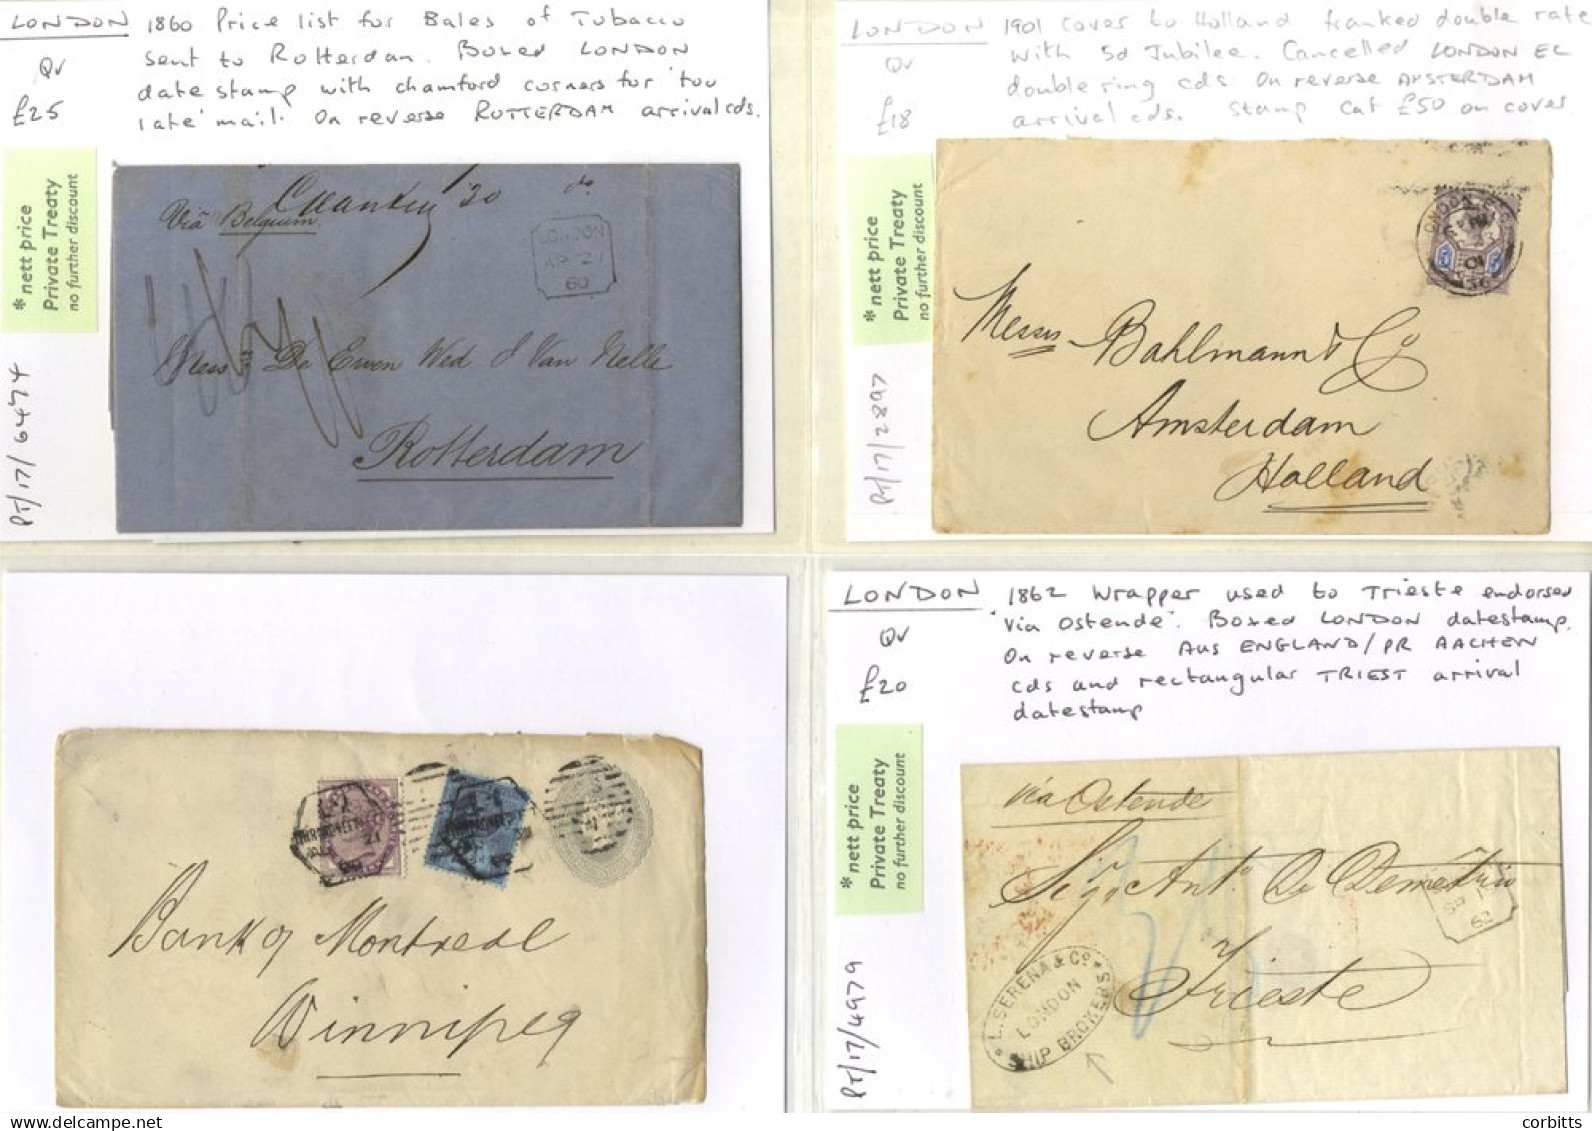 LONDON
QV
£25
1860 Price list for Bales of Tobacco
sent to Rotterdam. Boxed LONDON
datestamp with chamford corners for 'too
late' mail. On reverse ROTTERDAM arrival cds.
* nett price
Private Treaty
no further discount
PT/17/6474
Via Belgium
20
do.
LONDON
AP 21
60
Messrs De Erven Wed J Van Nelle
Rotterdam
LONDON
QV
£18
1901 cover to Holland franked double rate
with 5d Jubilee. Cancelled LONDON EC
double ring cds On reverse AMSTERDAM
arrival cds. Stamp Cat £50 on cover
* nett price
Private Treaty
no further discount
PT/17/2897
LONDON E.C
01
36
5 5
Messrs Bahlmann & Co
Amsterdam
Holland
Bank of Montreal
Winnipeg
LONDON
QV
£20
1862 Wrapper used to Trieste endorsed
'via Ostende'. Boxed LONDON datestamp.
On reverse AUS ENGLAND/PR AACHEN
cds and rectangular TRIEST arrival
datestamp
* nett price
Private Treaty
no further discount
PT/17/4979
via Ostende
Sigr. Anto. De Demetrio
Trieste
62
L. SERENA & Co
LONDON
SHIP BROKERS
corbitts.com